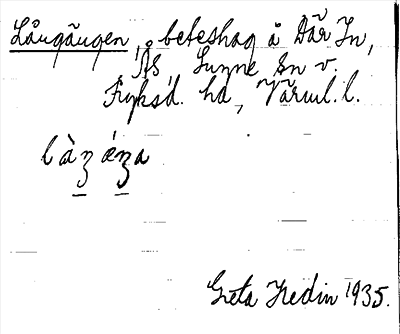 Långängen, beteshag å Där In,
Ås Sunne sn v.
Fryksd. hd, Värml. l.
làŋ äŋa
Greta Hedin 1935.